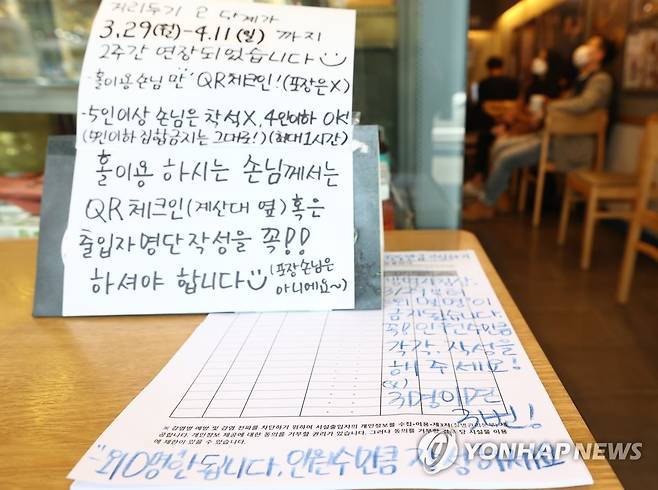 거리두기 2단계가
3.29(월)-4.11(일) 까지
2주간 연장되었습니다
-홀이용손님만 QR체크인!(포장은X)
-5인이상 손님은 착석X, 4인이하 OK!
(5인이하 집합금지는 그대로!)(최대1시간)
홀이용 하시는 손님께서는
QR체크인(계산대 옆)혹은
출입자명단작성을 꼭!!
하셔야 합니다 (포장손님은 아니에요~)
"외 O명"이
금지됩니다.
꼭! 인원수만큼
각각, 작성을
해주세요!
3명이면
3번!
※ 감염병 예방 및 감염 전파를 차단하기 위하여 시설출입자의 개인정보를 수집·이용·제3자
공합니다. 개인정보 제공에 대한 동의를 거부할 권리가 있습니다. 그러나 동의를 거부할 경우 시설 이용
에 제한이 있을 수 있습니다.
"외O명 안됩니다. 인원수만큼
YONHAP NEWS